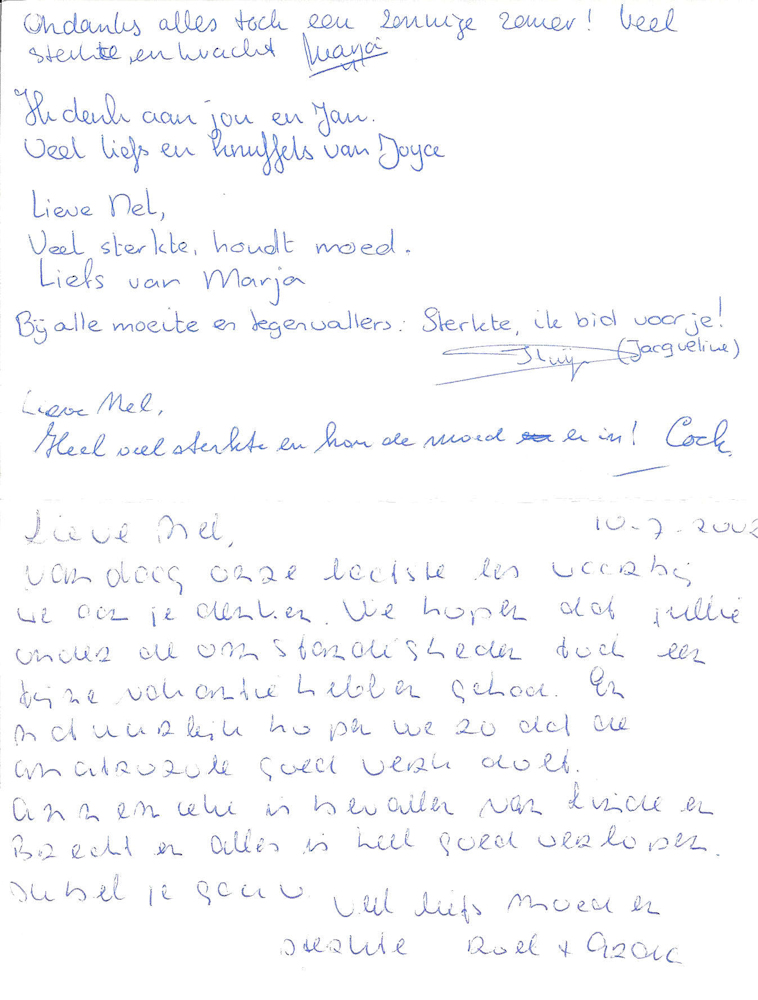 Ondanks alles toch een zonnige zomer! Veel
sterkte, en kracht Marja
Ik denk aan jou en Jan.
Veel liefs en knuffels van Joyce
Lieve Nel,
Veel sterkte, houdt moed.
Liefs van Marja
Bij alle moeite en tegenvallers: Sterkte, ik bid voor je!
(Jacqueline)
Lieve Nel,
Heel veel sterkte en hou de moed er in! Cock
Lieve Nel, 10-7-2002
vandaag onze laatste les waarbij
we aan je denken. We hopen dat jullie
onder de omstandigheden toch een
fijne vakantie hebben gehad. En
natuurlijk hopen we zo dat die
goed werk doet.
Annemieke is bevallen van Linde en
Brecht en alles is heel goed verlopen.
Ik bel je gauw. Veel liefs moed en
sterkte Roel +